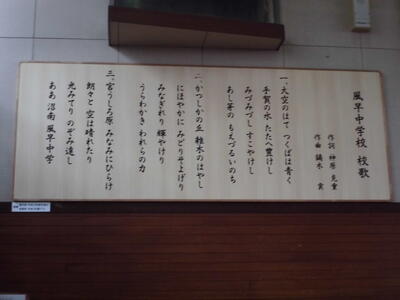 風早中学校 校歌
作詞 神原 克重
作曲 鏑木 實
一、大空のはて つくばは青く
手賀の水 たたへ豊けし
みづみづし すこやけし
あし芽の もえづるいのち
二、かつしかの丘 雑木のはやし
にほやかに みどりそよげり
みなぎれり 輝やけり
うらわかき われらの力
三、宮うしろ原 みなみにひらけ
朗々と 空は晴れたり
光みてり のぞみ達し
ああ 沼南 風早中学